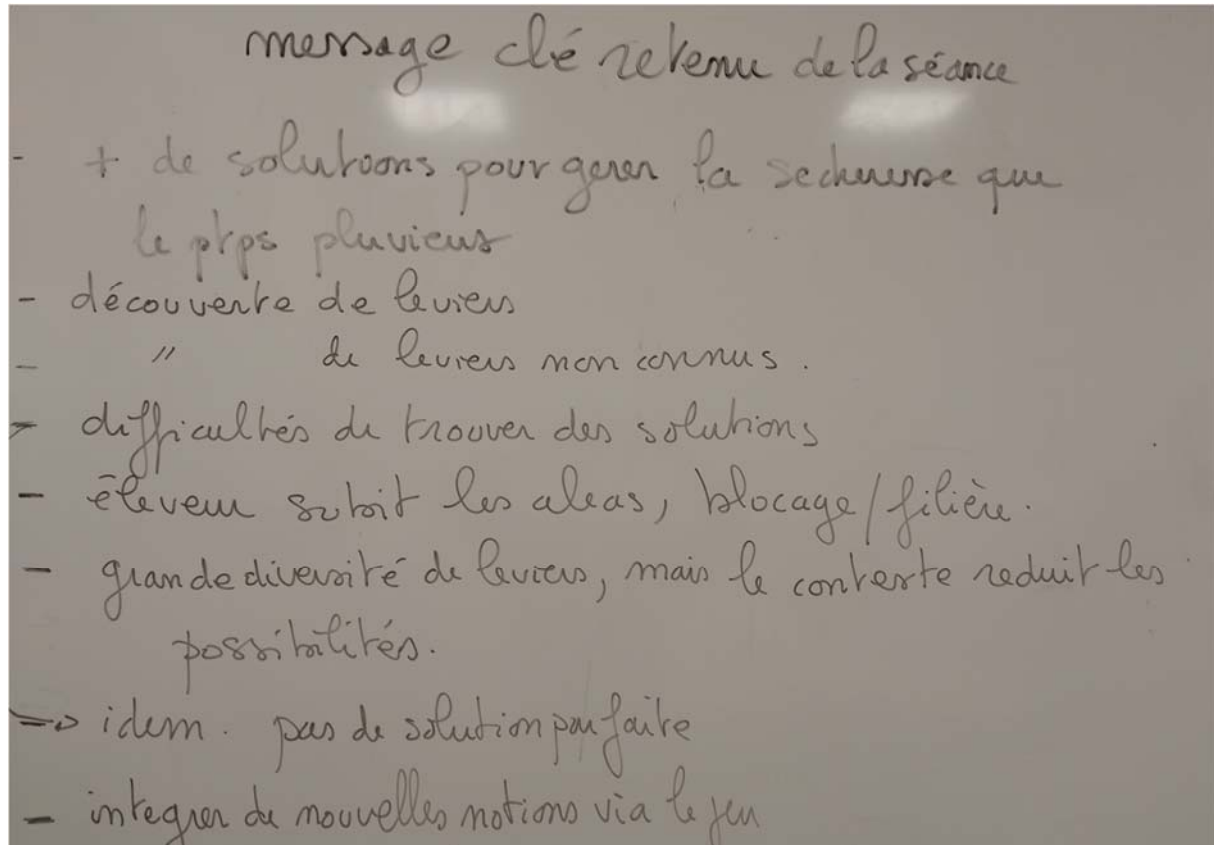 message clé retenu de la séance
- + de solutions pour gerer la secheresse que
le ptps pluvieux
- découverte de leviers
- " de leviers non connus.
- difficultés de trouver des solutions
- éleveur subit les aleas, blocage/filière.
- grande diversité de leviers, mais le contexte reduit les
possibilités.
=> idem. pas de solution parfaite
- integrer de nouvelles notions via le jeu